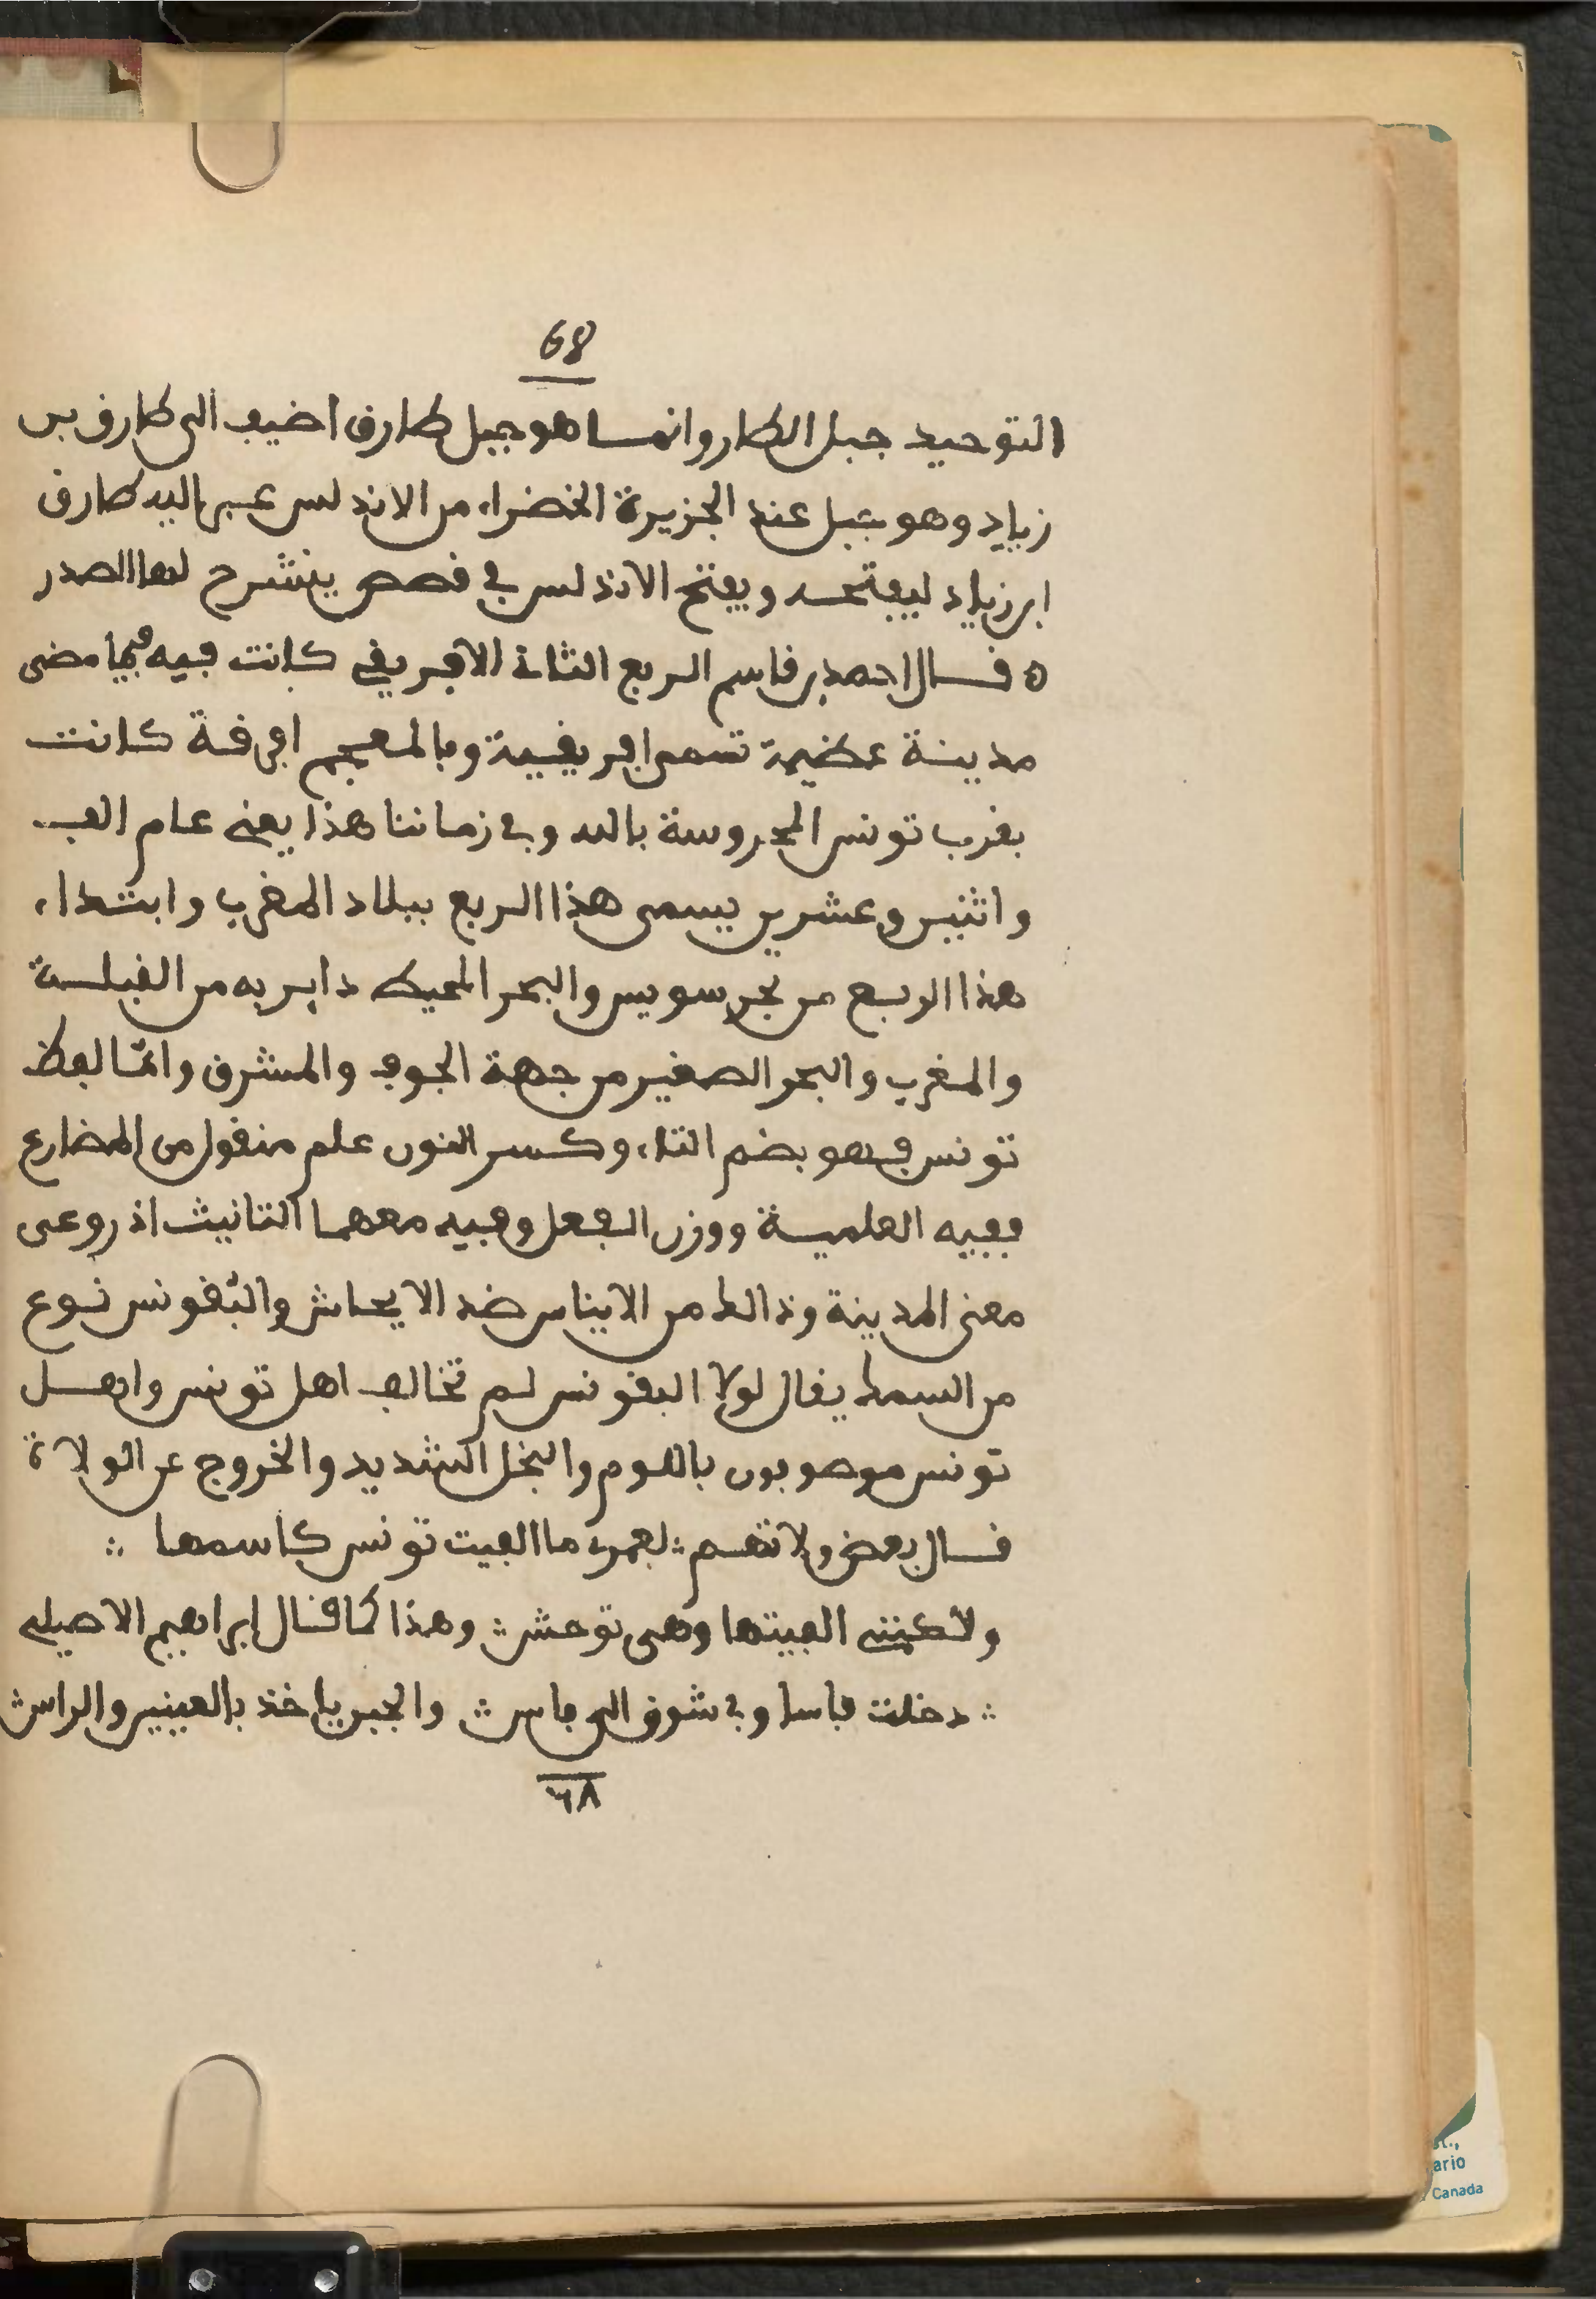 68
التوحيد جبل الطار وانمــا هو جبل طارق اضيف الى طارق بن
زياد وهو جبل عند الجزيرة الخضراء من الاندلس عبر اليه طارق
ابن زياد ليفتحـه ويفتح الاندلس في قصص ينشرح لها الصدر
ه قــال احمد بن قاسم الربع الثاني الافريقي كانت فيه فيما مضى
مدينة عظيمة تسمى افريقية وبالمعجم افرقة كانت
بقرب تونس المحروسة بالله وفي زماننا هذا يعني عام الف
واثنين وعشرين يسمى هذا الربع ببلاد المغرب وابتداء
هذا الربع من بحر سويس والبحر المحيط داير به من القبلــة
والمغرب والبحر الصغير من جهة الجوف والمشرق وامّا لفظ
تونس فهو بضم التاء وكسر النون علم منقول من المضارع
ففيه العلمية ووزن الفعل وفيه معهما التانيث اذ روعي
معنى المدينة وذالك من الايناس ضد الايحاش والبقونس نوع
من السمك يقال لولا البقونس لم تخالف اهل تونس واهــل
تونس موصوفون باللوم والبخل الشديد والخروج عن الولاة
قــال بعض ولاتهم ∴ لعمرى ما الفيت تونس كاسمها ∴
ولاكننى الفيتها وهى توحش ∴ وهذا كما قــال ابراهيم الاصيلي
∴ دخلت فاسا وبي شوق الى فاس ∴ والجبر ياخذ بالعينين والراس ∴
٦٨